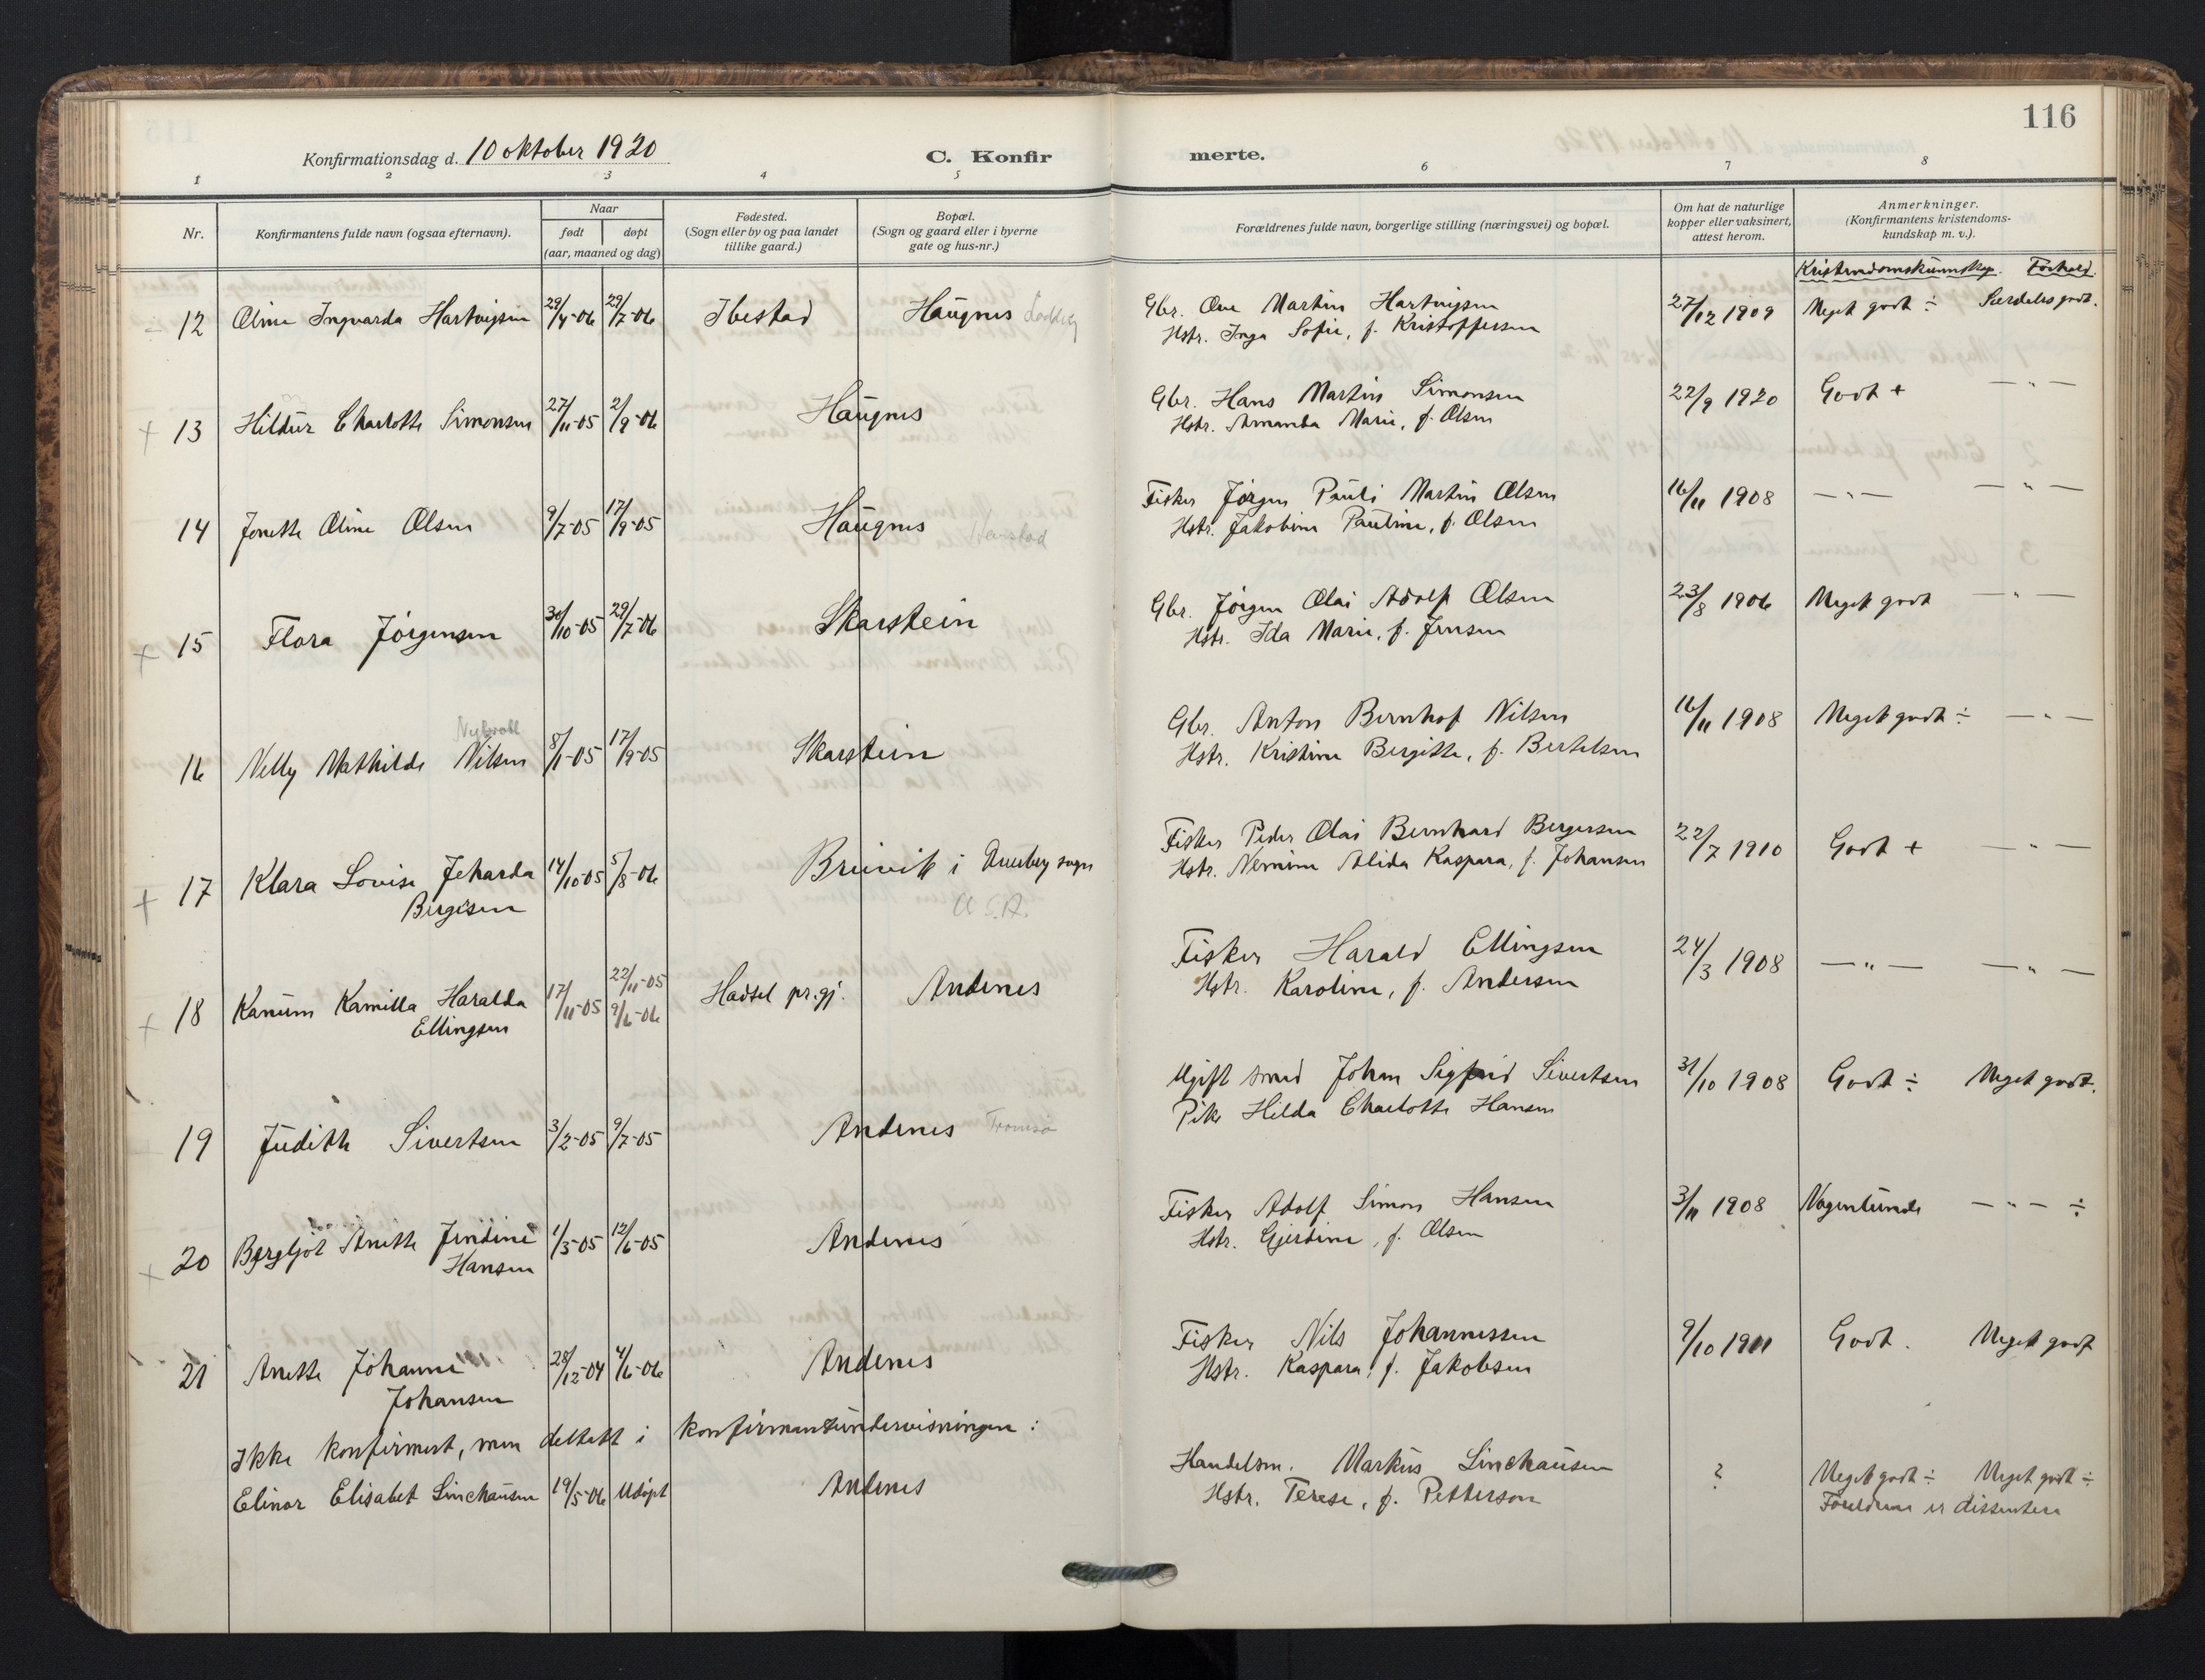 116
Konfirmationsdag d. 10 oktober 1920 C. Konfirmerte.
1 2 3 4 5 6 7 8
Nr. Konfirmantens fulde navn (ogsaa efternavn). Naar født døpt (aar, maaned og dag) Fødested. (Sogn eller by og paa landet tillike gaard.) Bopæl. (Sogn og gaard eller i byerne gate og hus-nr.) Forældrenes fulde navn, borgerlige stilling (næringsvei) og bopæl. Om hat de naturlige kopper eller vaksinert, attest herom. Anmerkninger. (Konfirmantens kristendoms-kundskap m. v.).
Kristendomskunnskap. Forhold.
12 Oline Ingvarda Hartvigsen 29/4-06 29/7-06 Ibestad Haugnes Gbr. Ove Martin Hartvigsen 27/12 1909 Meget godt ÷ Særdeles godt.
Hstr. Inga Sofie, f. Kristoffersen
+ 13 Hildur Charlotte Simonsen 27/11-05 2/9-06 Haugnes Gbr. Hans Martin Simonsen 22/9 1920 Godt + — " —
Hstr. Amanda Marie, f. Olsen
14 Jonette Oline Olsen 9/7-05 17/9-05 Haugnes Fisker Jørgen Pauli Martin Olsen 16/11 1908 — " — — " —
Hstr. Jakobine Pauline, f. Olsen
+ 15 Flora Jørgensen 30/10-05 29/7-06 Skarstein Gbr. Jørgen Olai Adolf Olsen 23/8 1906 Meget godt — " —
Hstr. Ida Marie, f. Jensen
Nyvoll
16 Nelly Mathilde Nilsen 8/1-05 17/9-05 Skarstein Gbr. Anton Bernhof Nilsen 16/11 1908 Meget godt ÷ — " —
Hstr. Kristine Bergitte, f. Bertelsen
+ 17 Klara Lovise Jeharda 14/10-05 5/8-06 Breivik i Dverberg sogn Fisker Peder Olai Bernhard Bergersen 22/7 1910 Godt + — " —
Bergersen U.S.A. Hstr. Nemine Alida Kaspara, f. Johansen
+ 18 Kanum Kamilla Haralda 17/11-05 22/11-05 Hadsel pr.gj. Andenes Fisker Harald Ellingsen 24/3 1908 — " — — " —
Ellingsen 9/6-06 Hstr. Karoline, f. Andersen
19 Judith Sivertsen 3/2-05 9/7-05 Andenes Tromsø Ugift smed Johan Sigfrid Sivertsen 31/10 1908 Godt ÷ Meget godt.
Pike Hilda Charlotte Hansen
+ 20 Bergljot Anette Jendine 1/3-05 12/6-05 Andenes Fisker Adolf Simon Hansen 3/11 1908 Nogenlunde — " — ÷
Hansen Hstr. Gjertine, f. Olsen
21 Anette Johanne 28/12-04 4/6-06 Andenes Fisker Nils Johannessen 9/10 1911 Godt. Meget godt
Johansen Hstr. Kaspara, f. Jakobsen
Ikke konfirmert, men deltatt i konfirmantundervisningen:
Elinor Elisabet Linchausen 19/5-06 Udøpt Andenes Handelsm. Markus Linchausen ? Meget godt ÷ Meget godt ÷
Hstr. Terese, f. Petterson Foreldrene er dissentere